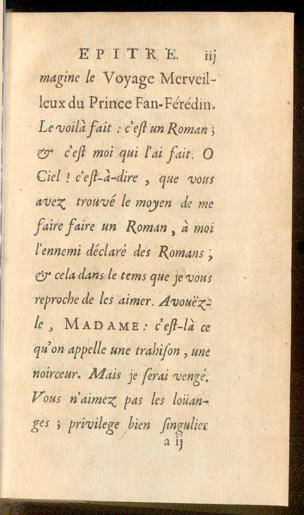 EPITRE. iij
magine le Voyage Merveil-
leux du Prince Fan-Férédin.
Le voilà fait : c'est un Roman ;
& c'est moi qui l'ai fait. O
Ciel ! c'est-à-dire , que vous
avez trouvé le moyen de me
faire faire un Roman , à moi
l'ennemi déclaré des Romans ;
& cela dans le tems que je vous
reproche de les aimer. Avoüez-
le , MADAME : c'est-là ce
qu'on appelle une trahison , une
noirceur. Mais je serai vengé.
Vous n'aimez pas les loüan-
ges ; privilege bien singulier
a ij